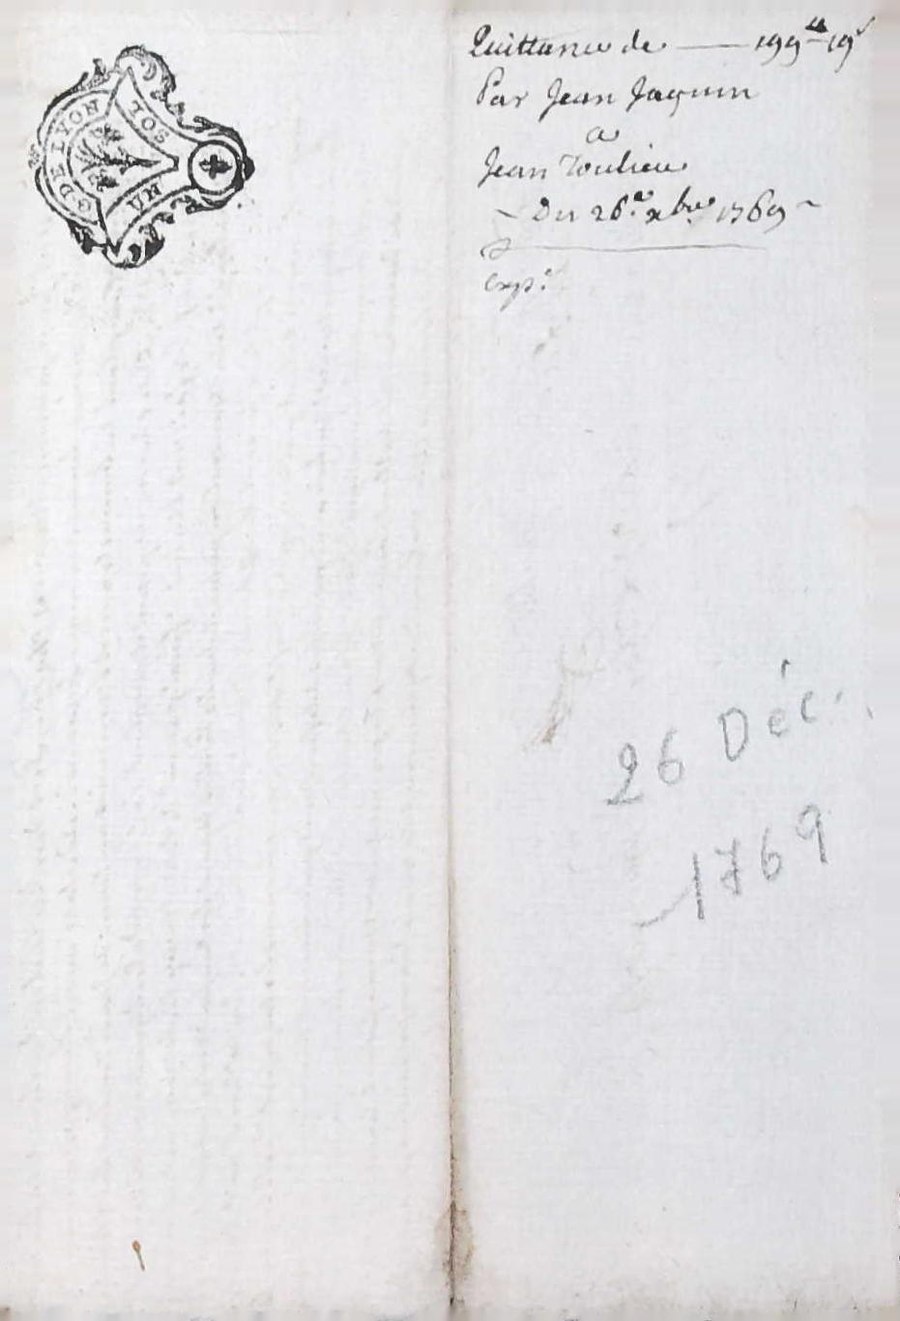 G. DE LYON
UN SOL
Quittance de — 199ᵗᵗ 19ˢ
Par Jean Jaquin
a
Jean
Du 26.ᵉ xbre 1769
exp.ᵉ
26 Déc.
1769